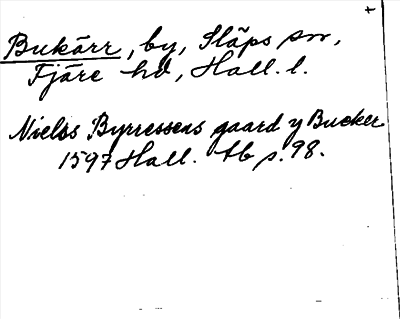 Bukärr, by, Släps sn,
Fjäre hd, Hall. l.
Nielss Byrressens gaard y Bucker
1597 Hall. tb s. 98.